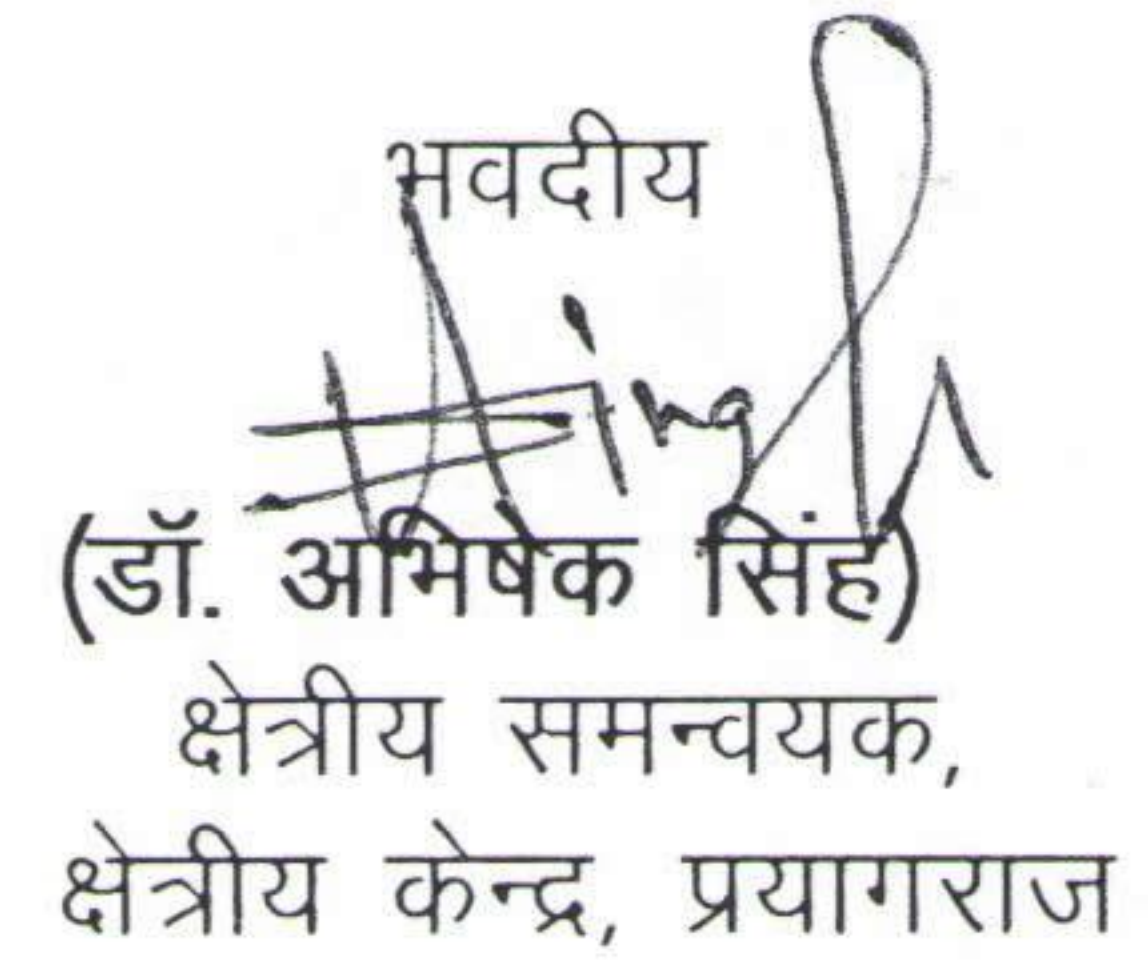 भवदीय
(डॉ. अभिषेक सिंह)
क्षेत्रीय समन्वयक,
क्षेत्रीय केन्द्र, प्रयागराज